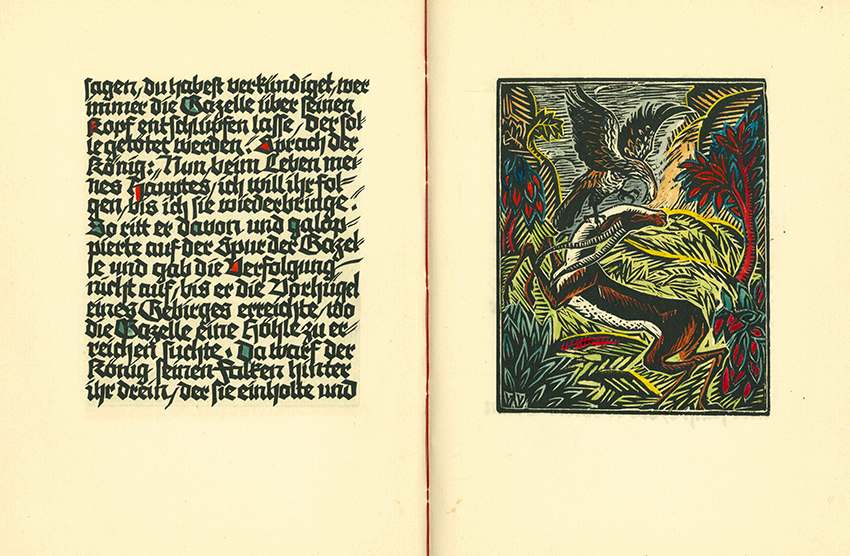 sagen, du habest verkündiget, wer
immer die Gazelle über seinen
Kopf entschlüpfen lasse, der sol-
le getötet werden. Sprach der
König: Nun, beim Leben mei-
nes Hauptes, ich will ihr fol-
gen, bis ich sie wiederbringe.
So ritt er davon und galop-
pierte auf der Spur der Gazel-
le und gab die Verfolgung
nicht auf, bis er die Vorhügel
eines Gebirges erreichte, wo
die Gazelle eine Höhle zu er-
reichen suchte. Da warf der
König seinen Falken hinter
ihr drein, der sie einholte und